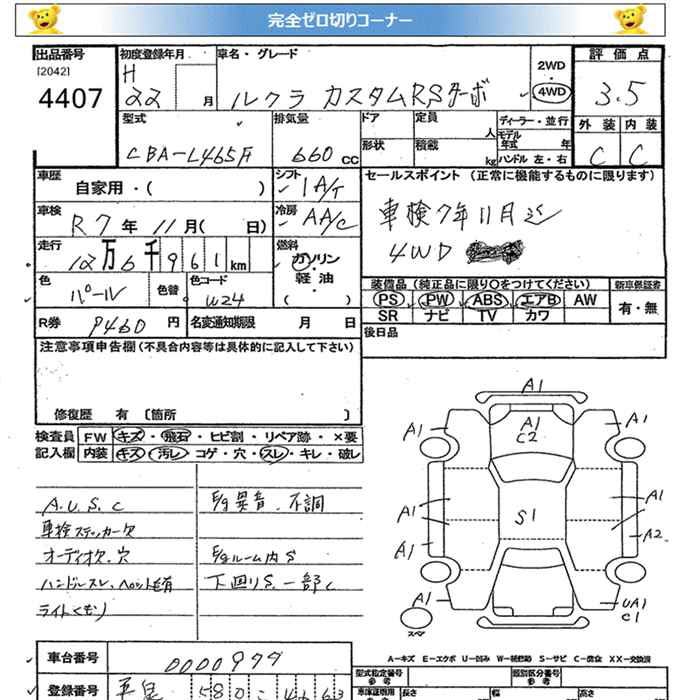 完全ゼロ切りコーナー
出品番号
[2042]
4407
初度登録年月
H
22
月
車名・グレード
ルクラ カスタムRSターボ
2WD
・
4WD
評価点
3.5
外装 内装
C C
型式
CBA-L465F
排気量
660 cc
ドア
定員
人
形状
積載
kg
ディーラー・並行
モデル年式 年
ハンドル 左・右
車歴
自家用・( )
シフト
1A/T
セールスポイント (正常に機能するものに限ります)
車検7年11月迄
4WD
車検
R7年11月( 日)
冷房
AA/C
走行
12万6千961km
燃料
ガソリン
軽油
( )
色
パール
色替
色コード
W24
装備品(純正品に限り○をつけてください)
PS PW ABS エアB AW
SR ナビ TV カワ
新車保証書
有・無
R券
9460円
名変通知期限 月 日
後日品
注意事項申告欄(不具合内容等は具体的に記入して下さい)
修復歴 有 〔箇所 〕
検査員記入欄
FW キズ・飛石・ヒビ割・リペア跡・×要
内装 キズ・汚レ・コゲ・穴・スレ・キレ・破レ
A.U.S.C
車検ステッカー欠
オーディオ欠.穴
ハンドルスレ、ヘッド毛有
ライトくもり
E/g異音.不調
E/gルーム内S
下廻りS.一部C
A1
A1
A1
C2
A1
A1
A1
A1
A2
S1
A1
UA1
C1
スペア
A-キズ E-エクボ U-凹み W-補修跡 S-サビ C-腐食 XX-交換済
車台番号
0000977
型式指定番号
類別区分番号
登録番号
長さ
幅
高さ